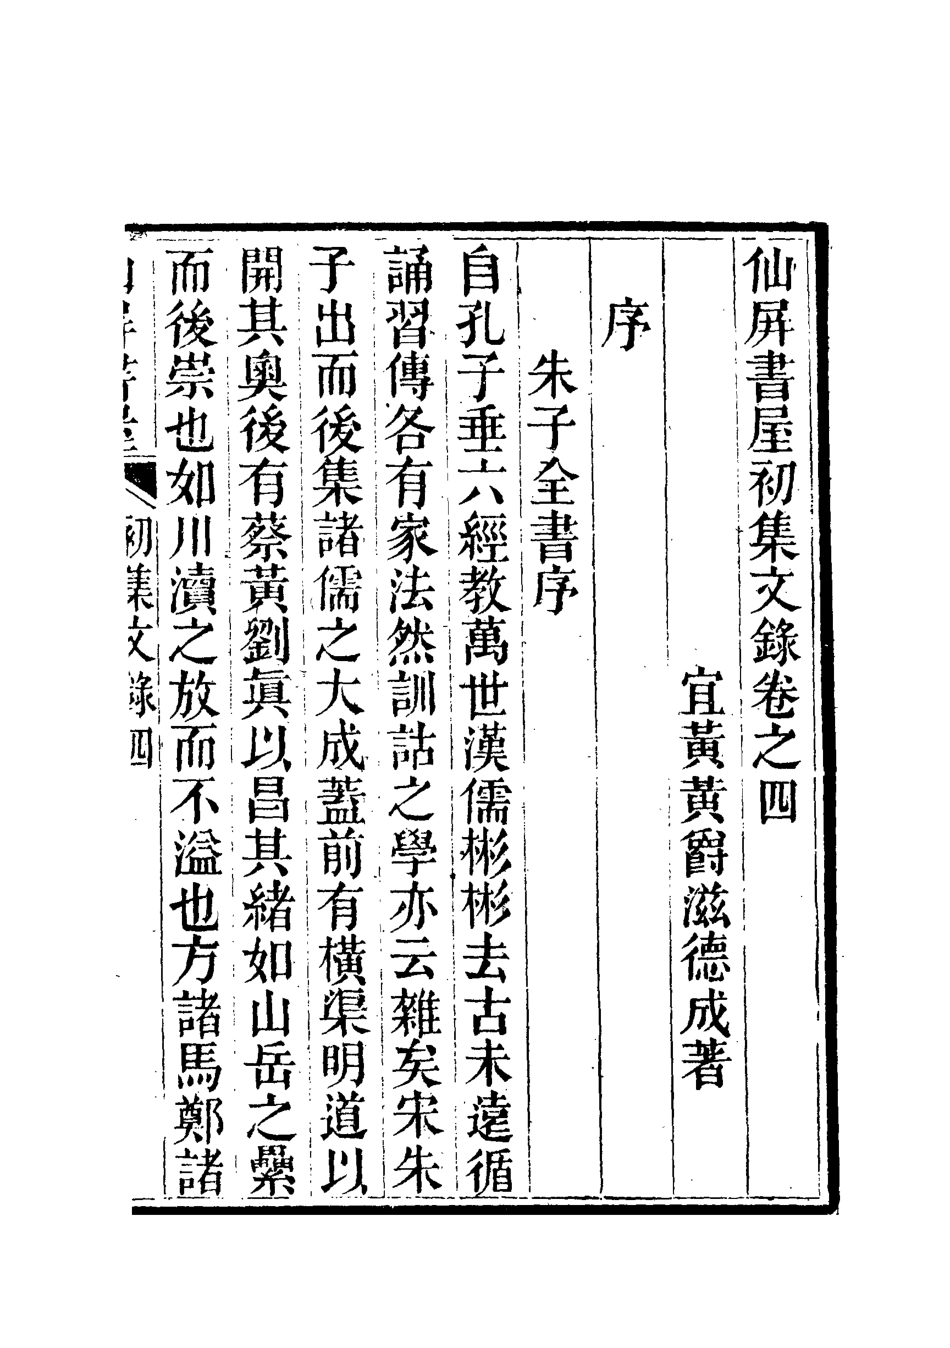 仙屏書屋初集文錄卷之四
宜黃黃爵滋德成著
序
朱子全書序
自孔子垂六經教萬世漢儒彬彬去古未遠循
誦習傳各有家法然訓詁之學亦云雜矣宋朱
子出而後集諸儒之大成蓋前有橫渠明道以
開其奧後有蔡黃劉眞以昌其緒如山岳之纍
而後崇也如川瀆之放而不溢也方諸馬鄭諸
初集文錄四